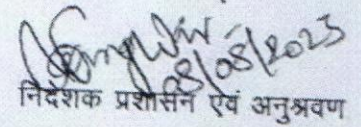 08/08/2023
निदेशक प्रशासन एवं अनुश्रवण